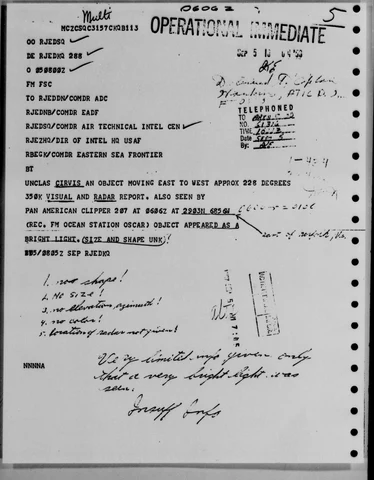 0606Z
Multi
5
MCZCSQC3157CKQB113
OPERATIONAL IMMEDIATE
OO RJEDSQ
DE RJEDKQ 288
FM FSC
TO RJEDDN/COMDR ADC
RJEDNB/COMDR EADF
RJEDSQ/COMDR AIR TECHNICAL INTEL CEN
RJEZHQ/DIR OF INTEL HQ USAF
RBEGK/COMDR EASTERN SEA FRONTIER
TELEPHONED
TO
NO.
TIME
DATE
By:
BT
UNCLAS CIRVIS AN OBJECT MOVING EAST TO WEST APPROX 228 DEGREES
350K VISUAL AND RADAR REPORT. ALSO SEEN BY
PAN AMERICAN CLIPPER 207 AT 0606Z AT 2903N 6856W
(REC. FM OCEAN STATION OSCAR) OBJECT APPEARED AS A
BRIGHT LIGHT. (SIZE AND SHAPE UNK)
east of norfolk, Va
05/0805Z SEP RJEDKQ
1. no shape!
2. No size!
3. no elevation, azimuth!
4. no color!
5. location of radar not given!
Very limited info given only
that a very bright light was
seen.
NNNNA
Insuff Info